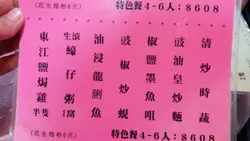 (花生每枱6元) 特色餐4-6人：$608
清炒時蔬
豉油皇炒麵
椒鹽墨魚咀
豉椒炒蜆
油浸龍脷
生滾蠔仔粥1窩
東江鹽焗雞半隻
(花生每枱6元) 特色餐4-6人：$608